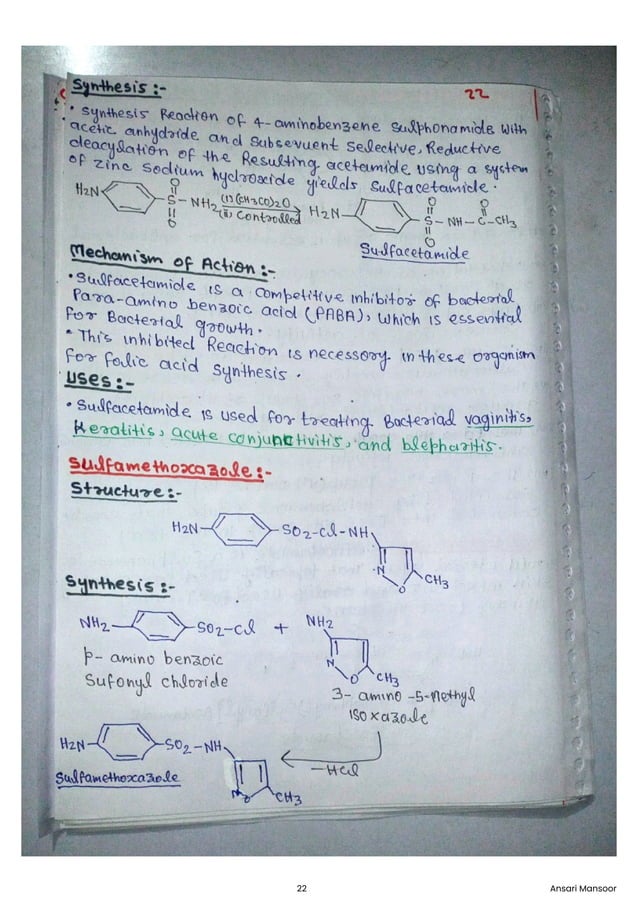 Synthesis :-
22
• Synthesis Reaction of 4-aminobenzene sulphonamide with
acetic anhydride and subsequent selective, Reductive
deacylation of the Resulting acetamide using a system
of zinc sodium hydroxide yields sulfacetamide.
H2N- O S O -NH2 (i) (CH3CO)2O (ii) Controlled H2N- O S O -NH-C-CH3 O
Sulfacetamide
Mechanism of Action :-
• Sulfacetamide is a competitive inhibitor of bacterial
Para-amino benzoic acid (PABA), which is essential
for Bacterial growth.
• This inhibited Reaction is necessory in these organism
for folic acid synthesis.
Uses :-
• Sulfacetamide is used for treating Bacterial vaginitis,
Keratitis, acute conjunctivitis, and blepharitis.
Sulfamethoxazole :-
Structure :-
H2N- -SO2-Cl-NH
N O CH3
Synthesis :-
NH2- -SO2-Cl + NH2
N O CH3
p- amino benzoic
Sufonyl chloride
3- amino -5-methyl
isoxazole
H2N- -SO2-NH
-HCl
N O CH3
Sulfamethoxazole
22
Ansari Mansoor